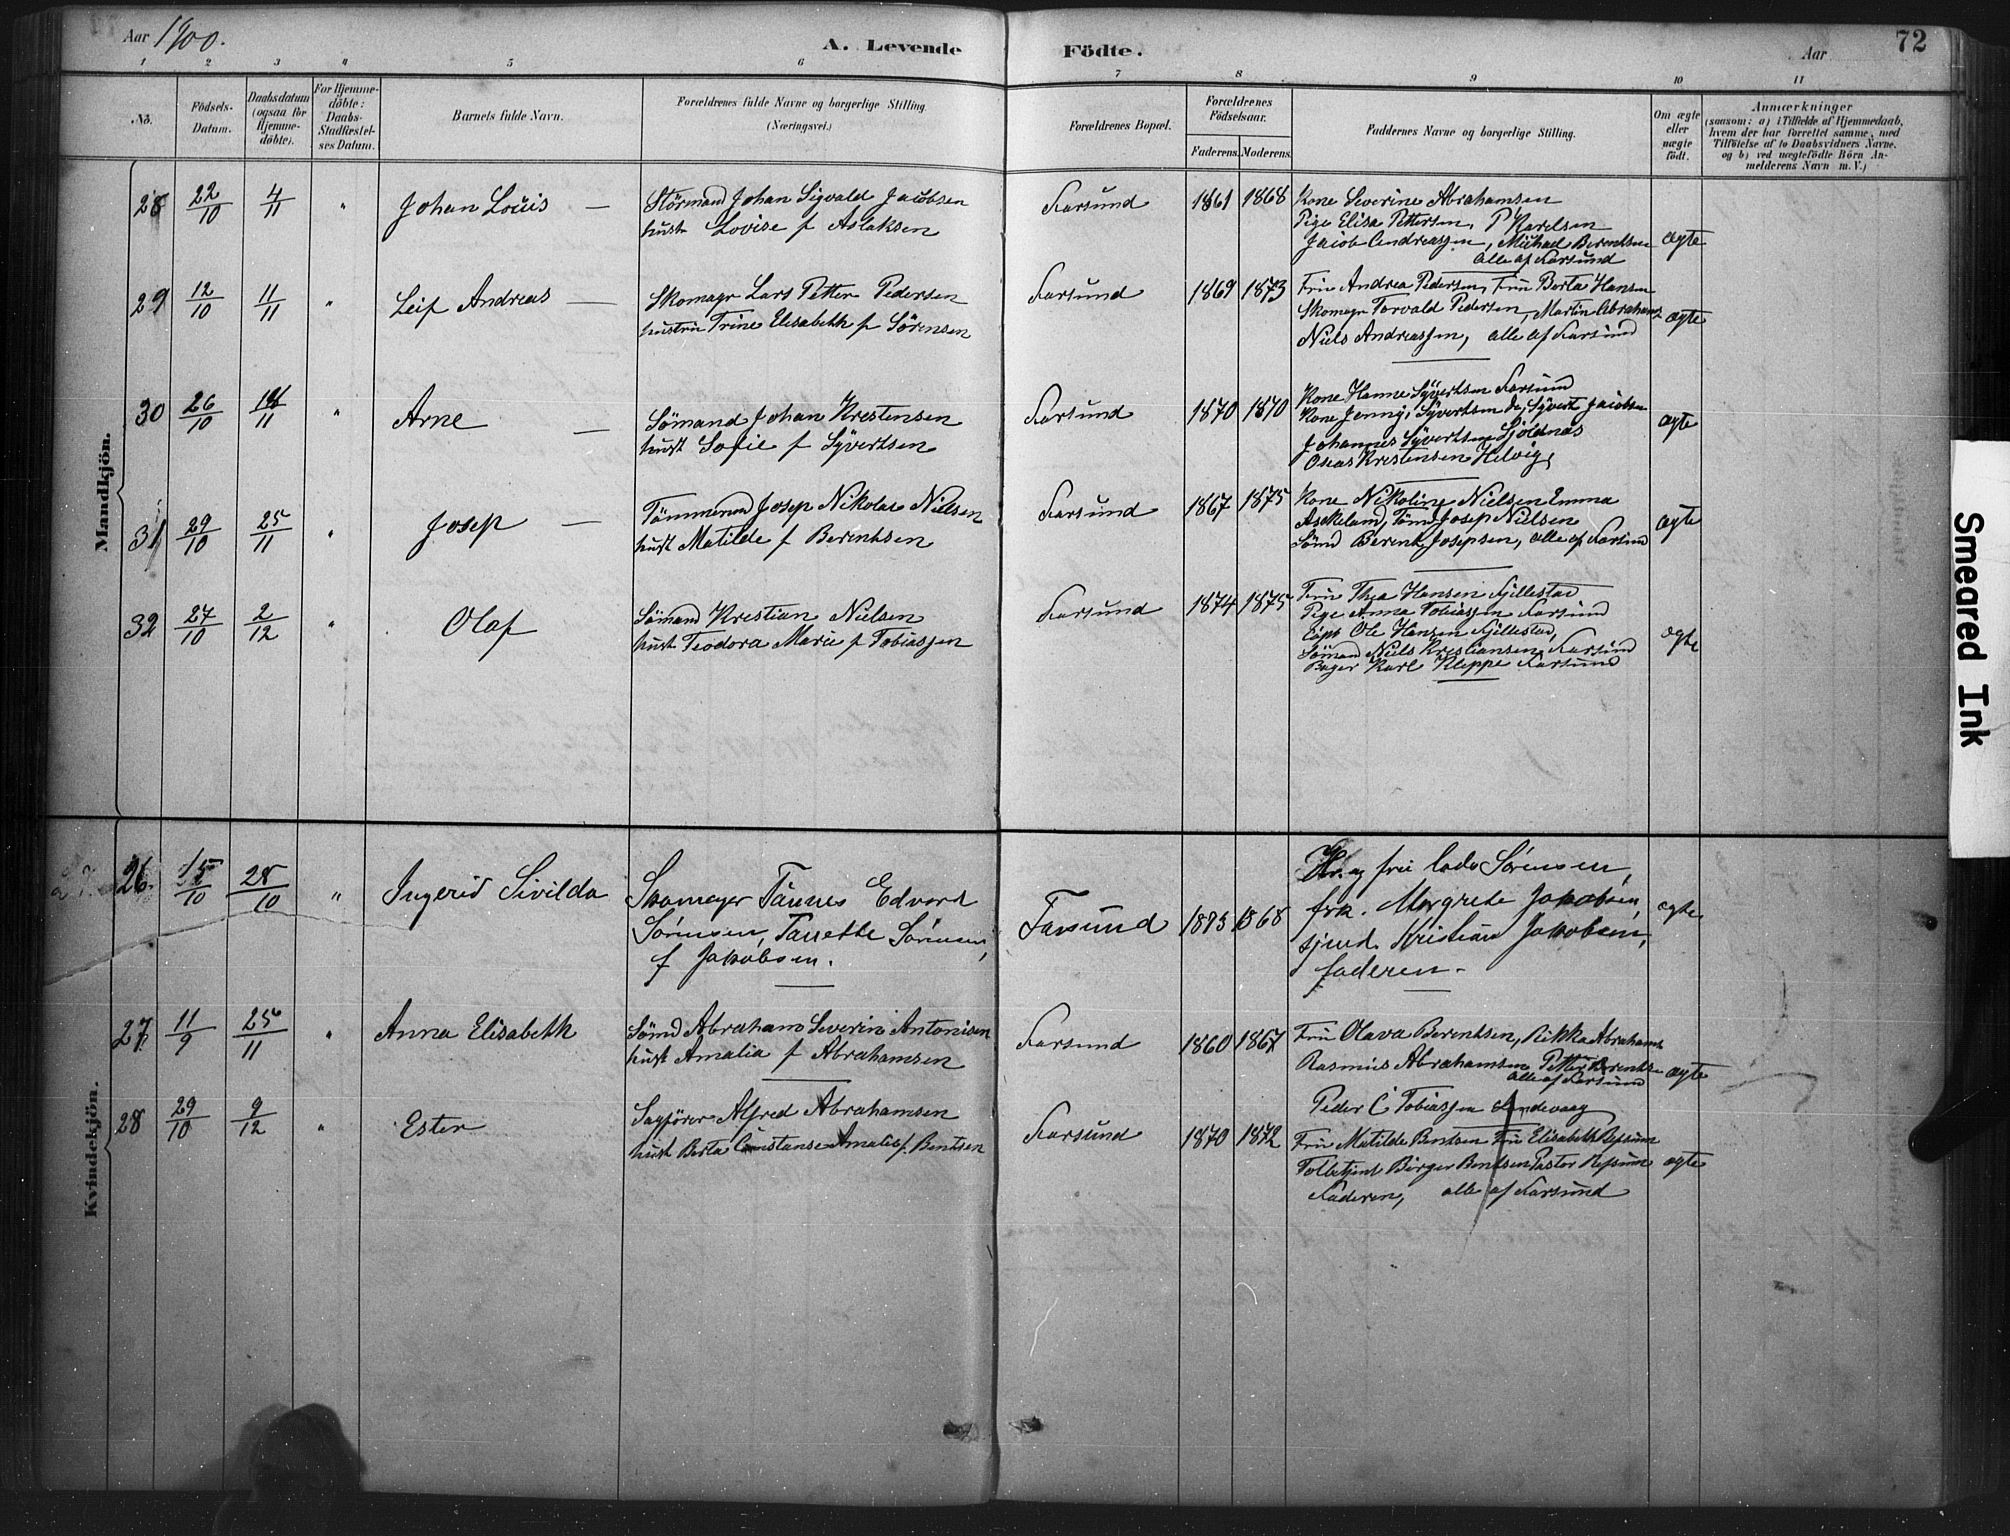 Aar 1900.
A. Levende Födte.
Aar
72
1 2 3 4 5 6 7 8 9 10 11
No.
Födsels-
Datum.
Daabsdatum
(ogsaa for
Hjemme-
döbte).
For Hjemme-
döbte:
Daabs-
Stadfæstel-
ses Datum.
Barnets fulde Navn.
Forældrenes fulde Navne og borgerlige Stilling
(Næringsvei.)
Forældrenes Bopæl.
Forældrenes
Födselsaar.
Faderens. Moderens.
Faddernes Navne og borgerlige Stilling.
Om ægte
eller
uægte
födt.
Anmærkninger
(saasom: a) i Tilfælde af Hjemmedaab,
hvem der har forrettet samme, med
Tilföielse af to Daabsvidners Navne,
og b) ved uægtefödte Börn An-
melderens Navn m.V.)
Mandkjön.
28 22/10 4/11 " Johan Louis —
Störmand Johan Sigvald Jacobsen
hustr Lovise f Aslaksen
Farsund 1861 1868
Kone Severine Abrahamsen
Pige Elisa Pettersen, P Karelsen
Jacob Andreassen, Michael Berentsen
alle af Farsund
ægte
29 12/10 11/11 " Leif Andreas —
Skomagr Lars Petter Pedersen
hustru Trine Elisabeth f Sörensen
Farsund 1869 1873
Fru Andrea Pedersen, Fru Berta Hansen
Skomagr Torvald Pedersen, Martin Abrahams
Niels Andreassen, alle af Farsund
ægte
30 26/10 18/11 " Arne —
Sömand Johan Krestensen
hust Sofie f Syvertsen
Farsund 1870 1870
Kone Hanne Syvertsen Farsund
Kone Jenny Syvertsen do, Syvert Jacobsen
Johannes Syvertsen Sjöldnæs
Oseas Kristensen Helvig,
ægte
31 29/10 25/11 " Josep —
Tömmermd Josep Nikolai Nielsen
hust Matilde f Berentsen
Farsund 1867 1875
Kone Nikoline Nielsen Emma
Aseheland, Tömd Josep Nielsen
Sömd Berent Josepsen, alle af Farsund
ægte
32 27/10 2/12 " Olaf
Sömand Kristian Nielsen
hust Teodora Marie f Tobiassen
Farsund 1874 1875
Fru Thea Hansen Gjillestad
Pige Anna Tobiassen Farsund
Capt Ole Hansen Gjillestad,
Sömand Niels Kristiansen Farsund
Bager Karl Kleppe Farsund
ægte
Kvindekjön.
26 15/10 28/10 " Ingerid Sivilda
Skomager Tännes Edvard
Sørensen, Tanette Sørensen,
f Jakobsen.
Farsund 1873 1868
Hr. og fru Lado Sørensen,
frk. Margrete Jakobsen,
sjmd. Kristian Jakobsen,
faderen.
ægte
27 11/9 25/11 " Anna Elisabeth
Sömd Abraham Severin Antonisen
hust Amalia f Abrahamsen
Farsund 1860 1867
Fru Olava Berentsen, Rikka Abrahams
Rasmus Abrahamsen Petter Berents
alle af Farsund
Peder C Tobiassen Lundevaag
ægte
28 29/10 9/12 " Ester
Sagförer Alfred Abrahamsen
hust Berta Constanse Amalie f. Bentsen
Farsund 1870 1872
Fru Matilde Bentsen Fru Elisabeth Repsum
Tolbetjent Birger Bentsen Pastor Repsum
Faderen, alle af Farsund
ægte
Smeared Ink